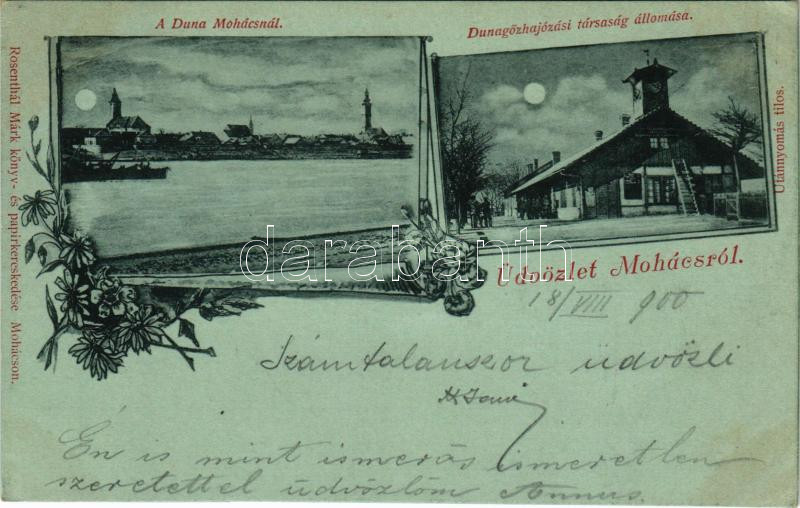 A Duna Mohácsnál.
Dunagőzhajózási társaság állomása.
Rosenthál Márk könyv- és papirkereskedése Mohácson.
Utánnyomás tilos.
darabanth
Üdvözlet Mohácsról.
18/VIII 900
Számtalanszor üdvözli
En is mint ismerős ismeretlen
szeretettel üdvözlöm Annus.